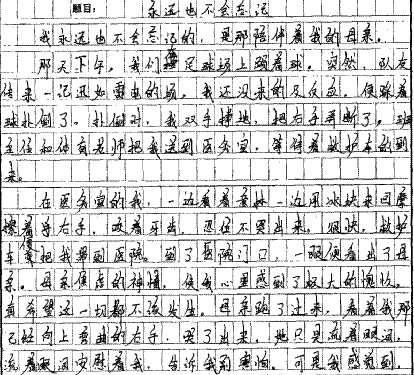 题目: 永远也不会忘记
我永远也不会忘记的,是那陪伴着我的母亲。
那天下午,我们在足球场上踢着球。突然,队友
传来一记迅如雷电的球,我还没来的及反应,便踩着
球扑倒了。扑倒时,我双手撑地,把右手弄断了。班
主任和体育老师把我送到医务室,等待着救护车的到
来。
在医务室的我,一边看着窗外一边用冰块来回摩
擦着右手,咬着牙齿,忍住不哭出来。很快,救护
车便把我带到医院。到了医院门口,一眼便看出了母
亲。母亲焦虑的神情,使我心里感到了极大的愧疚,
真希望这一切都不该发生。母亲跑了过来,看着我那
已经向上弯曲的右手,哭了出来,她只是流着眼泪,
流着眼泪安慰着我,告诉我别害怕。可是我感觉到